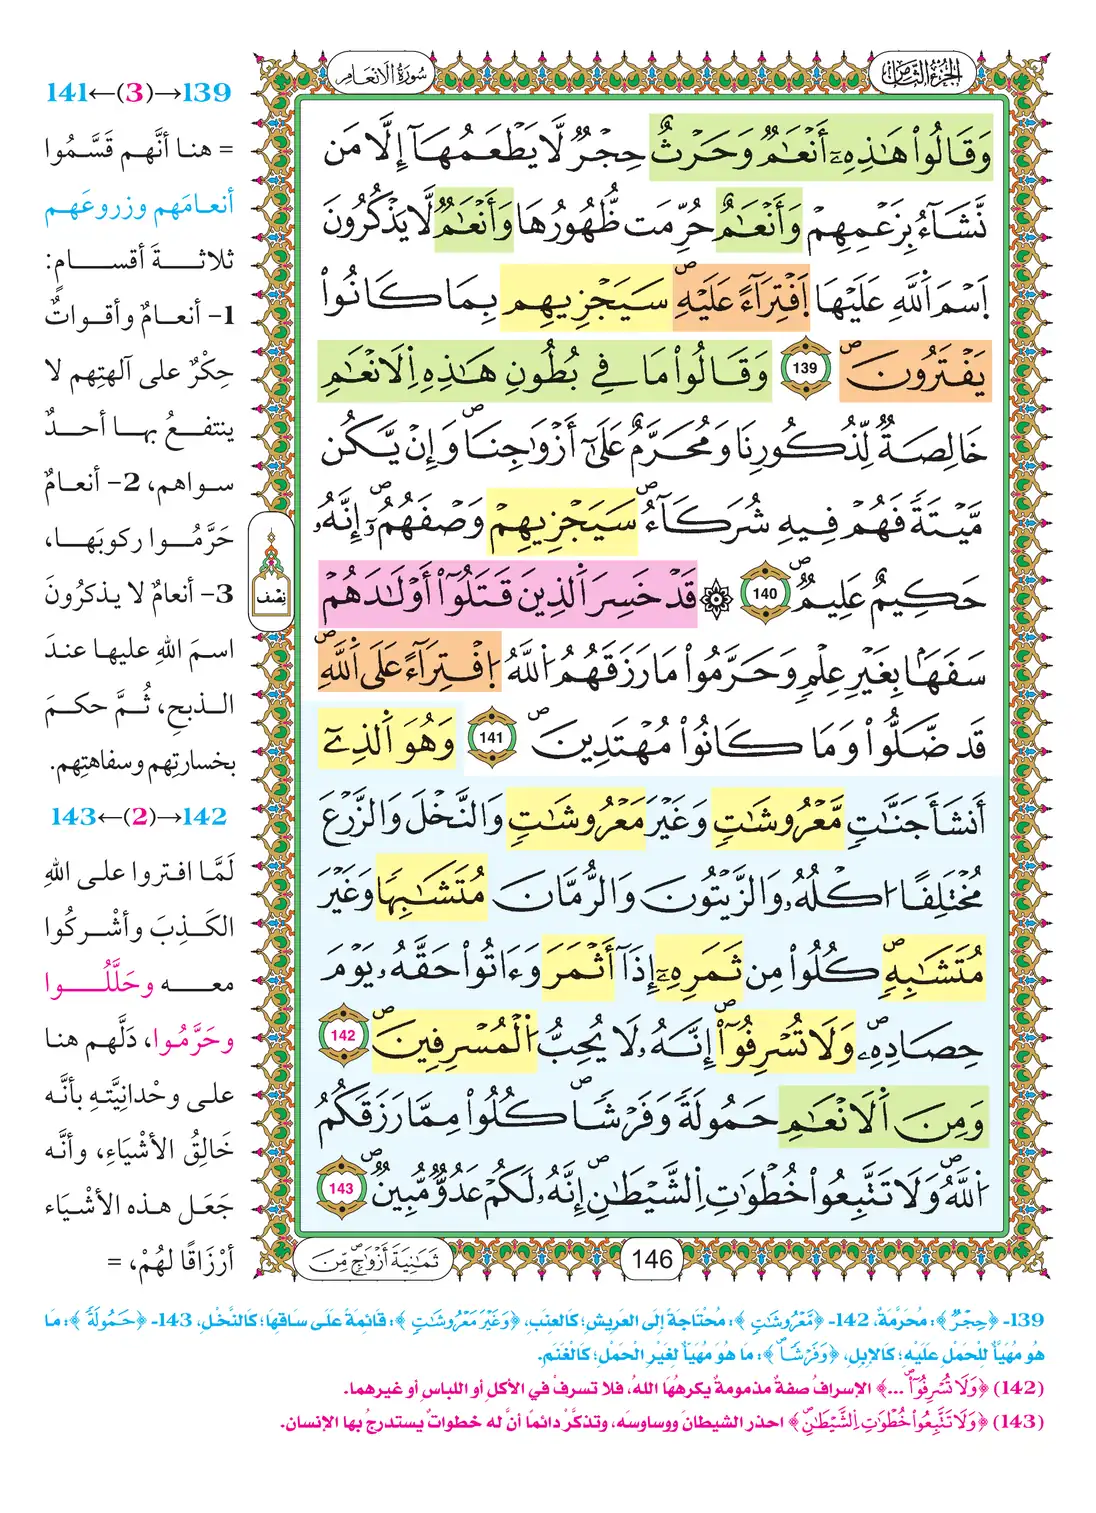 الجزء الثامن
سورة الأنعام
وَقَالُواْ هَٰذِهِۦٓ أَنْعَٰمٌ وَحَرْثٌ حِجْرٌ لَّا يَطْعَمُهَآ إِلَّا مَن
نَّشَآءُ بِزَعْمِهِمْ وَأَنْعَٰمٌ حُرِّمَت ظُّهُورُهَا وَأَنْعَٰمٌ لَّا يَذْكُرُونَ
اَسْمَ اَللَّهِ عَلَيْهَا اَفْتِرَآءً عَلَيْهِ سَيَجْزِيهِم بِمَا كَانُواْ
يَفْتَرُونَ 139 وَقَالُواْ مَا فِي بُطُونِ هَٰذِهِ اِلَانْعَٰمِ
خَالِصَةٌ لِّذُكُورِنَا وَمُحَرَّمٌ عَلَىٰٓ أَزْوَٰجِنَا وَإِنْ يَّكُن
مَّيْتَةً فَهُمْ فِيهِ شُرَكَآءُ سَيَجْزِيهِمْ وَصْفَهُمُۥٓ إِنَّهُۥ
حَكِيمٌ عَلِيمٌ 140 ۞ قَدْ خَسِرَ اَلذِينَ قَتَلُوٓاْ أَوْلَٰدَهُمْ
سَفَهَۢا بِغَيْرِ عِلْمٖ وَحَرَّمُواْ مَا رَزَقَهُمُ اُللَّهُ اُفْتِرَآءً عَلَى اَللَّهِ
قَد ضَّلُّواْ وَمَا كَانُواْ مُهْتَدِينَ 141 وَهُوَ اَلذِےٓ
أَنشَأَ جَنَّٰتٖ مَّعْرُوشَٰتٖ وَغَيْرَ مَعْرُوشَٰتٖ وَالنَّخْلَ وَالزَّرْعَ
مُخْتَلِفًا اُكْلُهُۥ وَالزَّيْتُونَ وَالرُّمَّانَ مُتَشَٰبِهًا وَغَيْرَ
مُتَشَٰبِهٖ كُلُواْ مِن ثَمَرِهِۦٓ إِذَآ أَثْمَرَ وَءَاتُواْ حَقَّهُۥ يَوْمَ
حِصَادِهِۦ وَلَا تُسْرِفُوٓاْ إِنَّهُۥ لَا يُحِبُّ اُلْمُسْرِفِينَ 142
وَمِنَ اَلَانْعَٰمِ حَمُولَةً وَفَرْشًا كُلُواْ مِمَّا رَزَقَكُمُ
اُللَّهُ وَلَا تَتَّبِعُواْ خُطْوَٰتِ اِلشَّيْطَٰنِ إِنَّهُۥ لَكُمْ عَدُوٌّ مُّبِينٌ 143
نصف
ثَمَٰنِيَةَ أَزْوَٰجٖ مِّنَ
146
139→(3)←141
= هنا أنَّهم قَسَّمُوا
أنعامَهم وزروعَهم
ثلاثةَ أقسامٍ:
1- أنعامٌ وأقواتٌ
حِكْرٌ على آلهتِهم لا
ينتفعُ بها أحدٌ
سواهم، 2- أنعامٌ
حَرَّمُوا ركوبَها،
3- أنعامٌ لا يذكرُونَ
اسمَ اللهِ عليها عندَ
الذبحِ، ثُمَّ حكمَ
بخسارتِهم وسفاهتِهم.
142→(2)←143
لَمَّا افتروا على اللهِ
الكَذِبَ وأشْركُوا
معه وحَلَّلُوا
وحَرَّمُوا، دَلَّهم هنا
على وحْدانِيَّتِهِ بأنَّه
خَالِقُ الأشْيَاءِ، وأنَّه
جَعَل هذه الأشْيَاء
أرْزَاقًا لهُمْ، =
139- ﴿حِجْرٌ﴾: مُحَرَّمَةٌ، 142- ﴿مَّعْرُوشَٰتٖ﴾: مُحْتَاجَةً إِلَى العَرِيشِ؛ كَالعِنَبِ، ﴿وَغَيْرَ مَعْرُوشَٰتٖ﴾: قَائِمَةً عَلَى سَاقِهَا؛ كَالنَّخْلِ، 143- ﴿حَمُولَةً﴾: مَا
هُوَ مُهَيَّأٌ لِلْحَمْلِ عَلَيْهِ؛ كَالإِبِلِ، ﴿وَفَرْشًا﴾: مَا هُوَ مُهَيَّأٌ لِغَيْرِ الْحَمْلِ؛ كَالْغَنَمِ.
(142) ﴿وَلَا تُسْرِفُوٓاْ ...﴾ الإسرافُ صفةٌ مذمومةٌ يكرهُهَا اللهُ، فلا تسرفْ في الأكلِ أو اللباسِ أو غيرهما.
(143) ﴿وَلَا تَتَّبِعُواْ خُطْوَٰتِ اِلشَّيْطَٰنِ﴾ احذر الشيطانَ ووساوسَه، وتذكَّرْ دائمًا أنَّ له خطواتٌ يستدرجُ بها الإنسان.